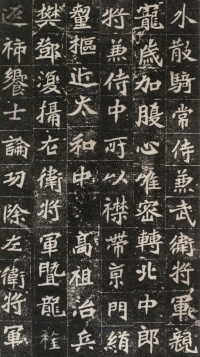 水散騎常侍兼武衛將軍親
寵歲加腹心唯密轉北中郎
將兼侍中所以襟帶京門緝
釐樞近太和中 高祖治兵
樊鄧復攝右衛將軍暨龍旌
返旆饗士論功除左衛將軍